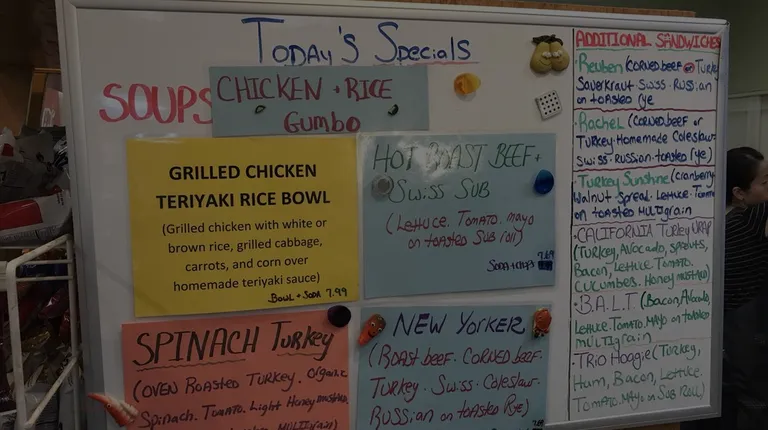 TODAY'S SPECIALS
SOUPS
CHICKEN + RICE
GUMBO
GRILLED CHICKEN
TERIYAKI RICE BOWL
(Grilled chicken with white or
brown rice, grilled cabbage,
carrots, and corn over
homemade teriyaki sauce)
BOWL + SODA 7.99
HOT ROAST BEEF +
SWISS SUB
(LETTUCE. TOMATO. MAYO
ON TOASTED SUB ROLL)
SODA + CHIPS
SPINACH TURKEY
(OVEN ROASTED TURKEY. ORGANIC
SPINACH. TOMATO. LIGHT HONEY MUSTARD
MULTIGRAIN)
NEW YORKER
(ROAST BEEF. CORNED BEEF.
TURKEY. SWISS. COLESLAW.
RUSSIAN ON TOASTED RYE)
ADDITIONAL SANDWICHES
Reuben (CORNED BEEF OR TURKEY
SAUERKRAUT. SWISS. RUSSIAN
ON TOASTED RYE
Rachel (CORNED BEEF OR
TURKEY. HOMEMADE COLESLAW.
SWISS. RUSSIAN. TOASTED RYE)
Turkey Sunshine (CRANBERRY
WALNUT SPREAD. LETTUCE. TOMATO
ON TOASTED MULTIGRAIN
CALIFORNIA TURKEY WRAP
(TURKEY, AVOCADO, SPROUTS,
BACON, LETTUCE TOMATO.
CUCUMBERS. HONEY MUSTARD)
B.A.L.T (BACON, AVOCADO,
LETTUCE. TOMATO. MAYO ON TOASTED
MULTIGRAIN
TRIO HOAGIE (TURKEY,
HAM, BACON, LETTUCE.
TOMATO. MAYO ON SUB ROLL)